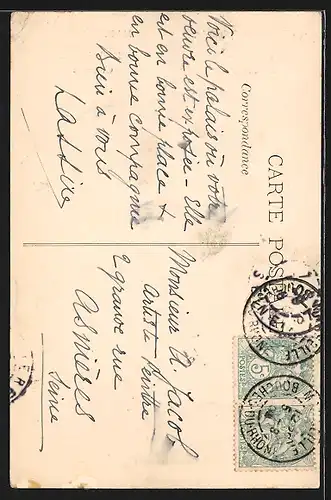 CARTE POS
Correspondance
Voici le palais où votre
oeuvre est exposée - Elle
est en bonne place &
en bonne compagnie
Bien à vous
Monsieur A. Jacob
Artiste Peintre
2 grande rue
Asnières
Seine
5
POSTES
BOUCHES-DU-RHONE